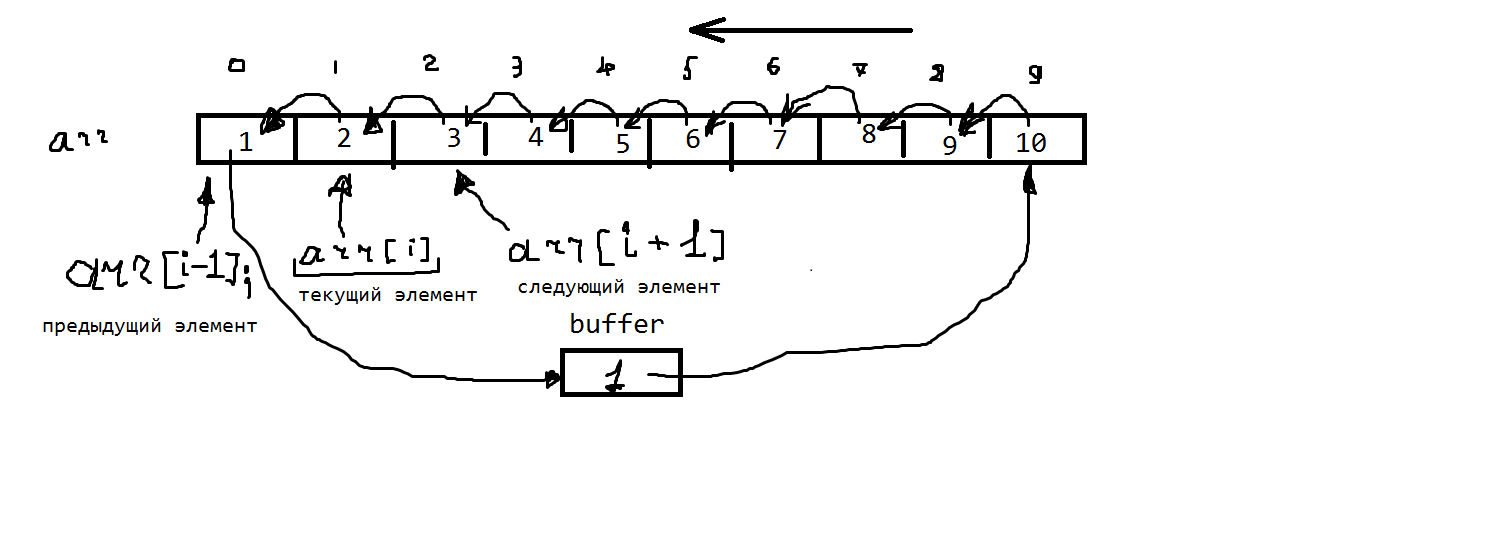 0 1 2 3 4 5 6 7 8 9
arr 1 2 3 4 5 6 7 8 9 10
arr[i-1]; arr[i] arr[i+1]
предыдущий элемент текущий элемент следующий элемент
buffer
1